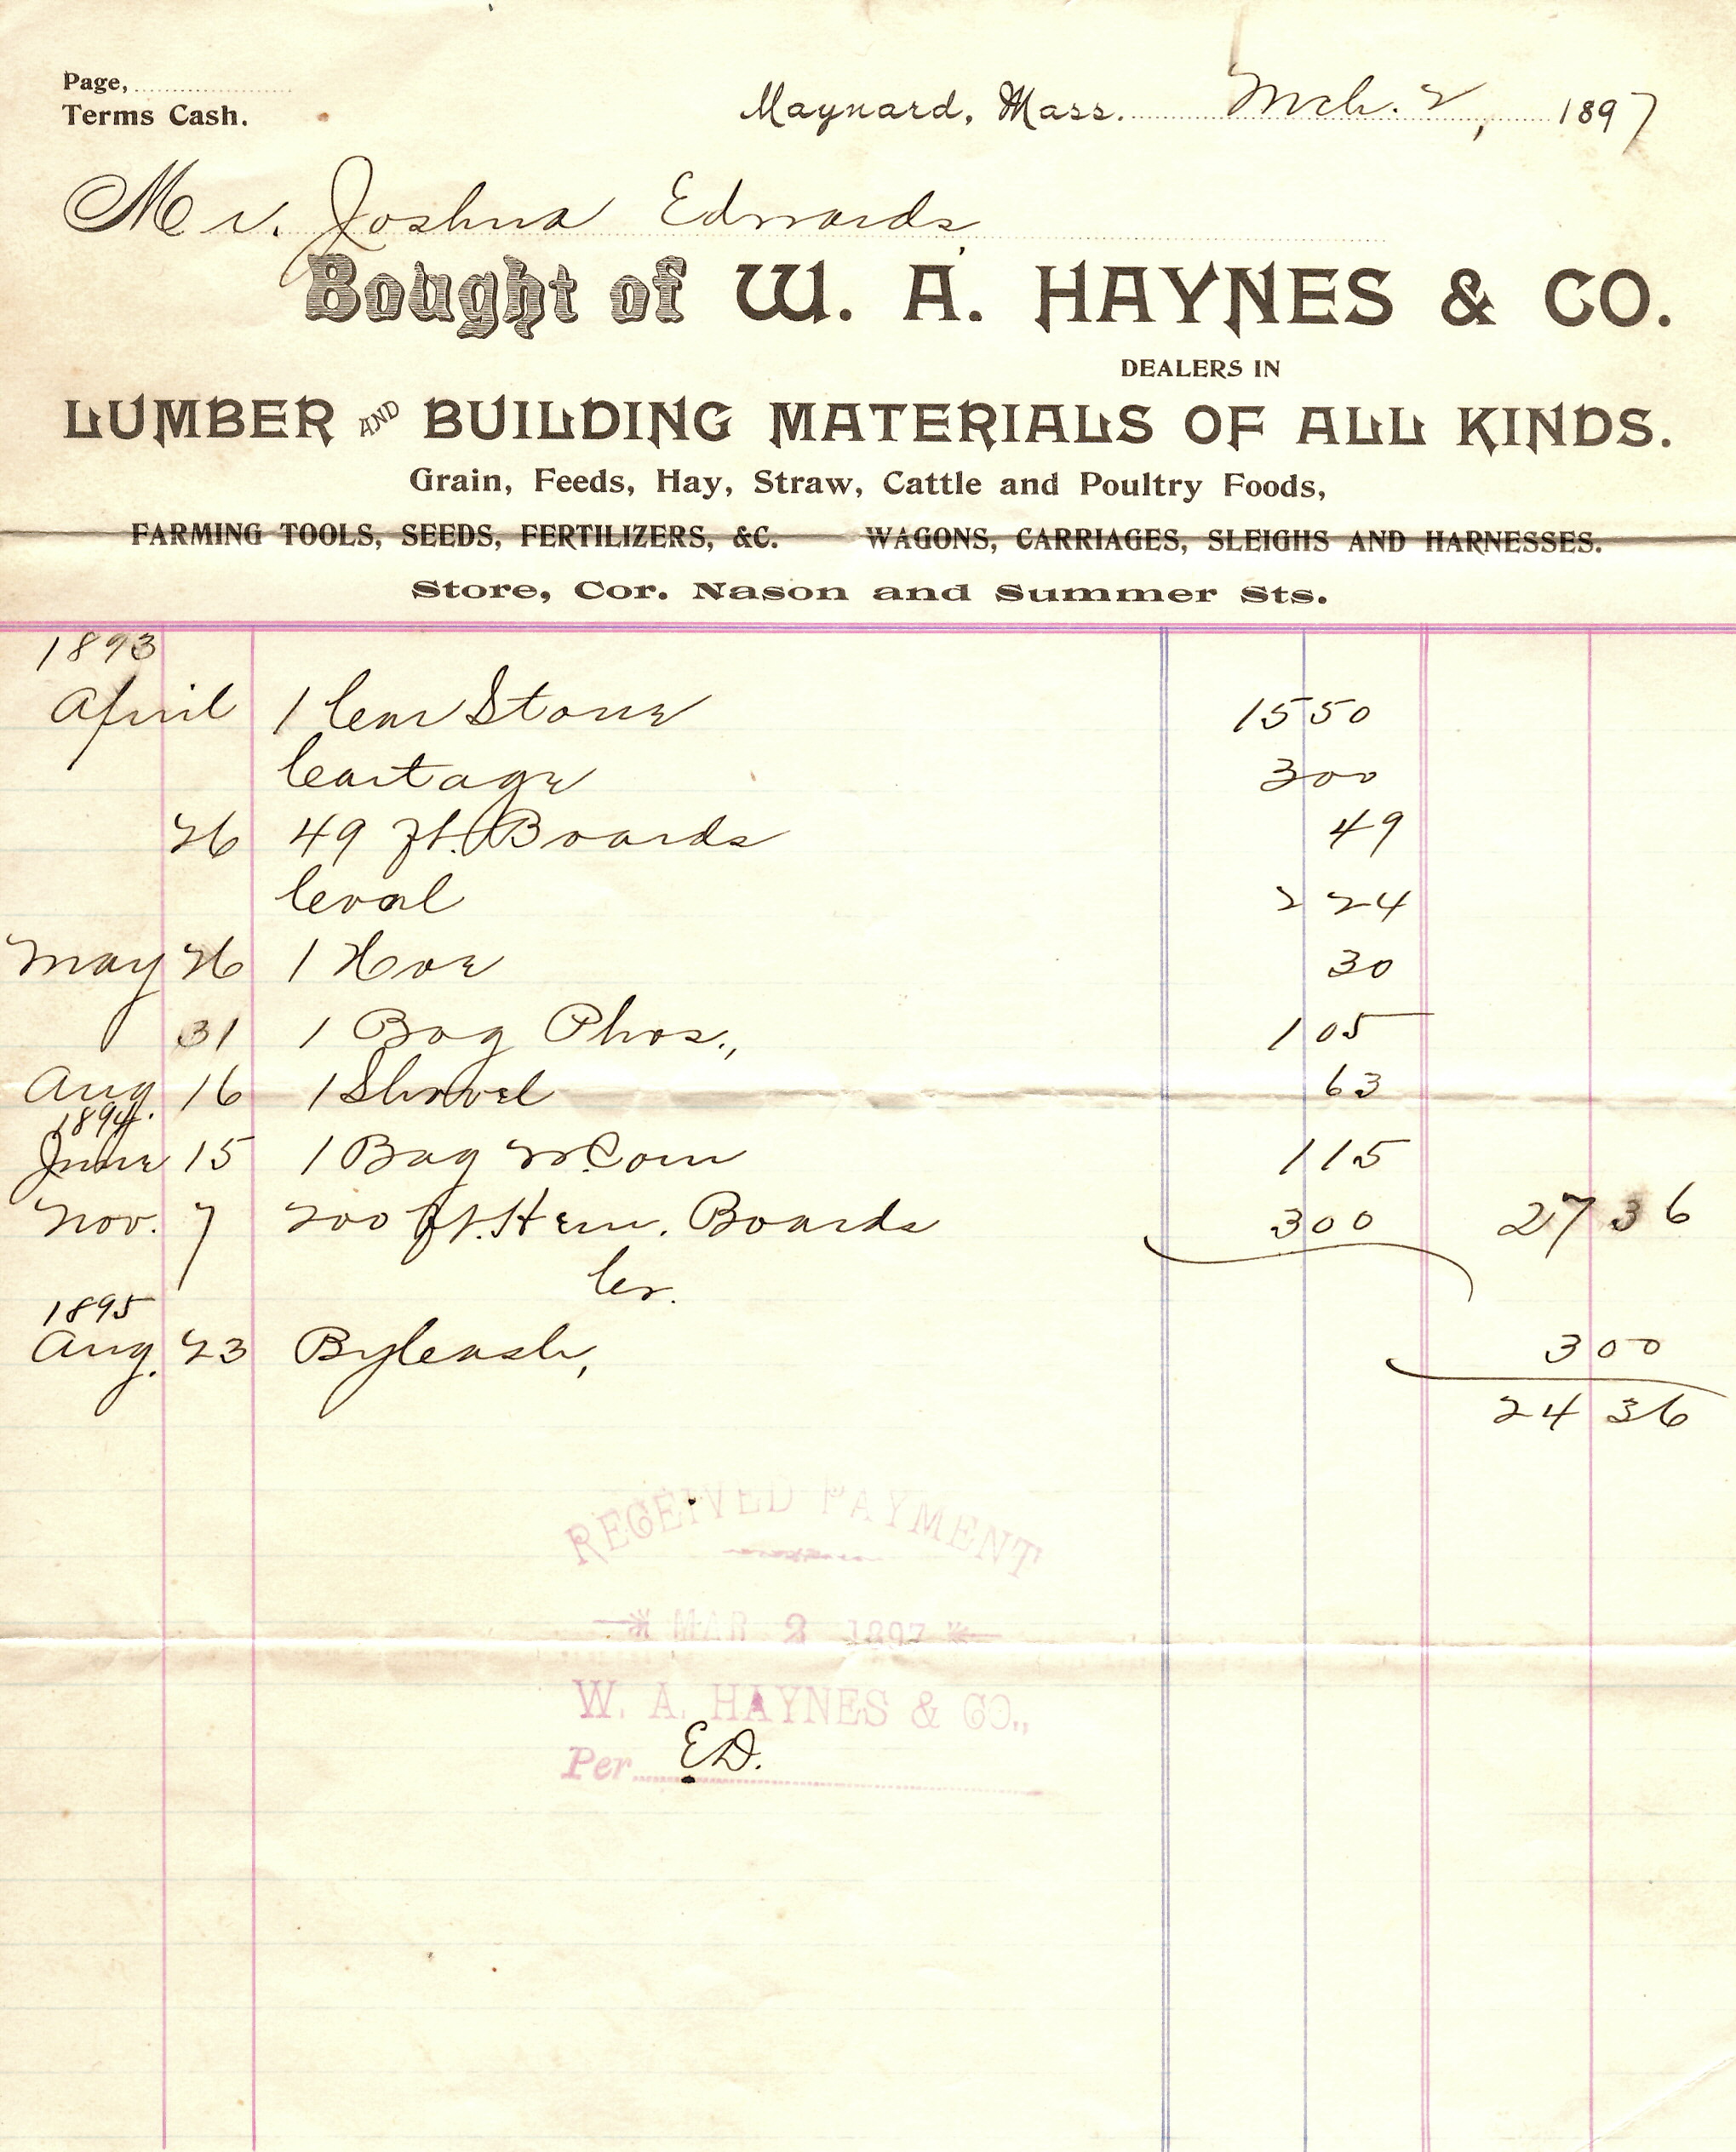 Page,
Terms Cash.
Maynard, Mass. Mch. 2, 1897
Mr. Joshua Edwards,
Bought of W. A. HAYNES & CO.
DEALERS IN
LUMBER AND BUILDING MATERIALS OF ALL KINDS.
Grain, Feeds, Hay, Straw, Cattle and Poultry Foods,
FARMING TOOLS, SEEDS, FERTILIZERS, &C. WAGONS, CARRIAGES, SLEIGHS AND HARNESSES.
Store, Cor. Nason and Summer Sts.
1893
April 1 Car Stone 15 50
Cartage 3 00
26 49 ft. Boards 49
Coal 2 24
May 26 1 Hoe 30
31 1 Bag Phos., 1 05
Aug. 16 1 Shovel 63
1894.
June 15 1 Bag Corn 1 15
Nov. 7 200 ft. Hem. Boards 3 00 27 36
Cr.
1895
Aug. 23 By Cash, 3 00
24 36
RECEIVED PAYMENT
MAR 2 1897
W. A. HAYNES & CO.,
Per E.D.